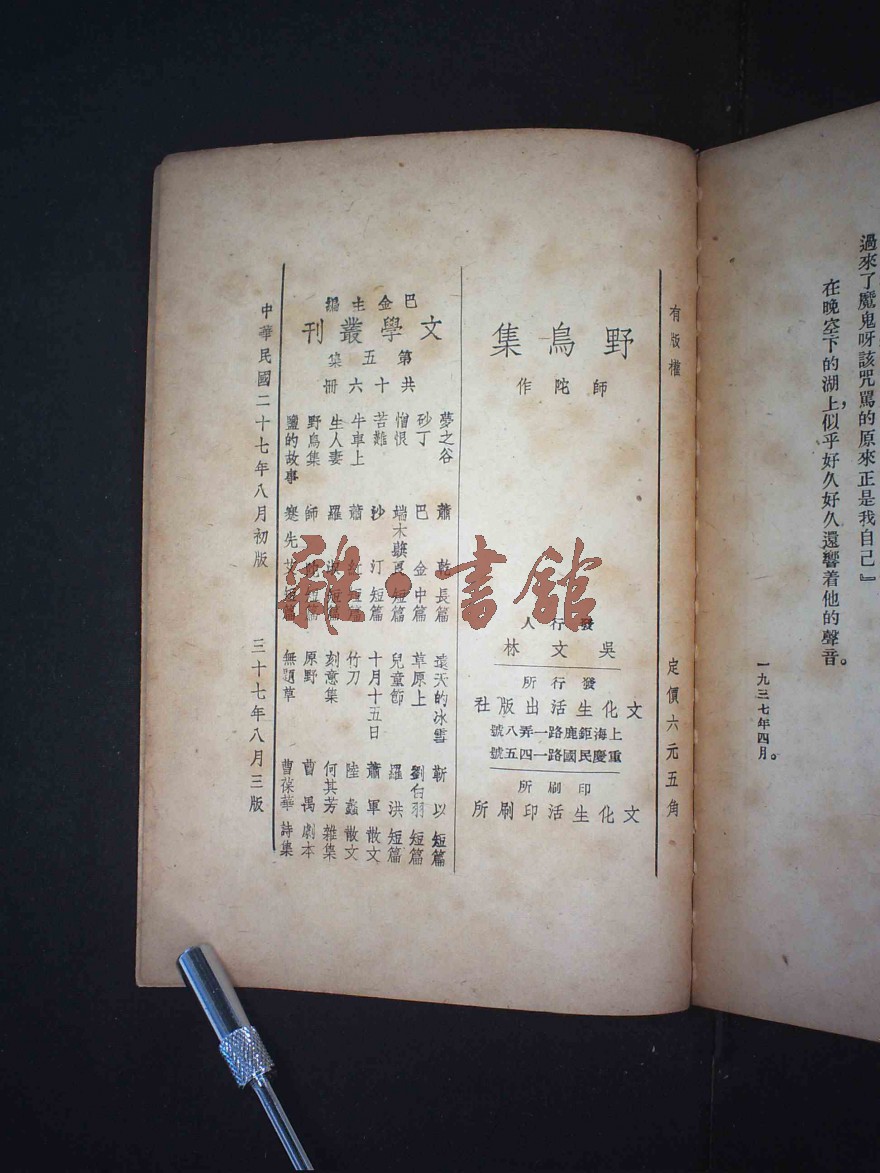 過來了魔鬼呀該咒罵的原來正是我自己』
在晚空下的湖上,似乎好久好久還響着他的聲音。
一九三七年四月。
有版權
定價六元五角
野鳥集
師陀作
發行人
吳文林
發行所
文化生活出版社
上海鉅鹿路一弄八號
重慶民國路一四五號
印刷所
文化生活印刷所
巴金主編
文學叢刊
第五集
共十六冊
夢之谷 蕭乾 長篇
砂丁 巴金 中篇
憎恨 端木蕻良 短篇
苦難 沙汀 短篇
牛車上 蕭紅 短篇
生人妻 羅淑 短篇
野鳥集 師陀 短篇
鹽的故事 蹇先艾 短篇
遠天的冰雪 靳以 短篇
草原上 劉白羽 短篇
兒童節 羅洪 短篇
十月十五日 蕭軍 散文
竹刀 陸蠡 散文
刻意集 何其芳 雜集
原野 曹禺 劇本
無題草 曹葆華 詩集
中華民國二十七年八月初版
三十七年八月三版
雜·書館